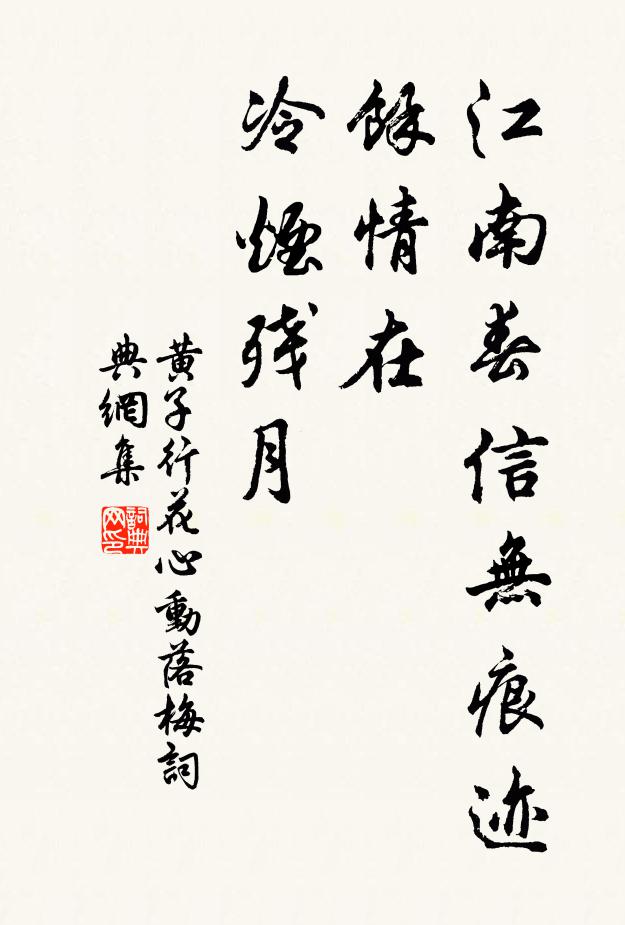 江南春信無痕迹
餘情在
冷煙残月
黄子行花心動落梅詞
典網集
詞典网印